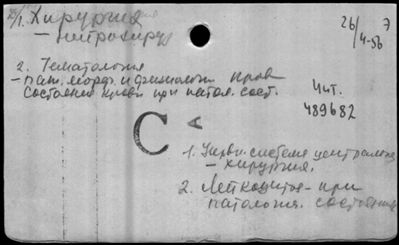 1. Хирургия
26/7
- нейрохирур
4-56
2. Гематология
- Пат. морф. и физиология кров
Состояния крови при патол. сост.
Чит.
489682
С
А
1. Нервн. система центральная
- хирургия.
2. Лейкоцитоз - при
патологич. состояниях